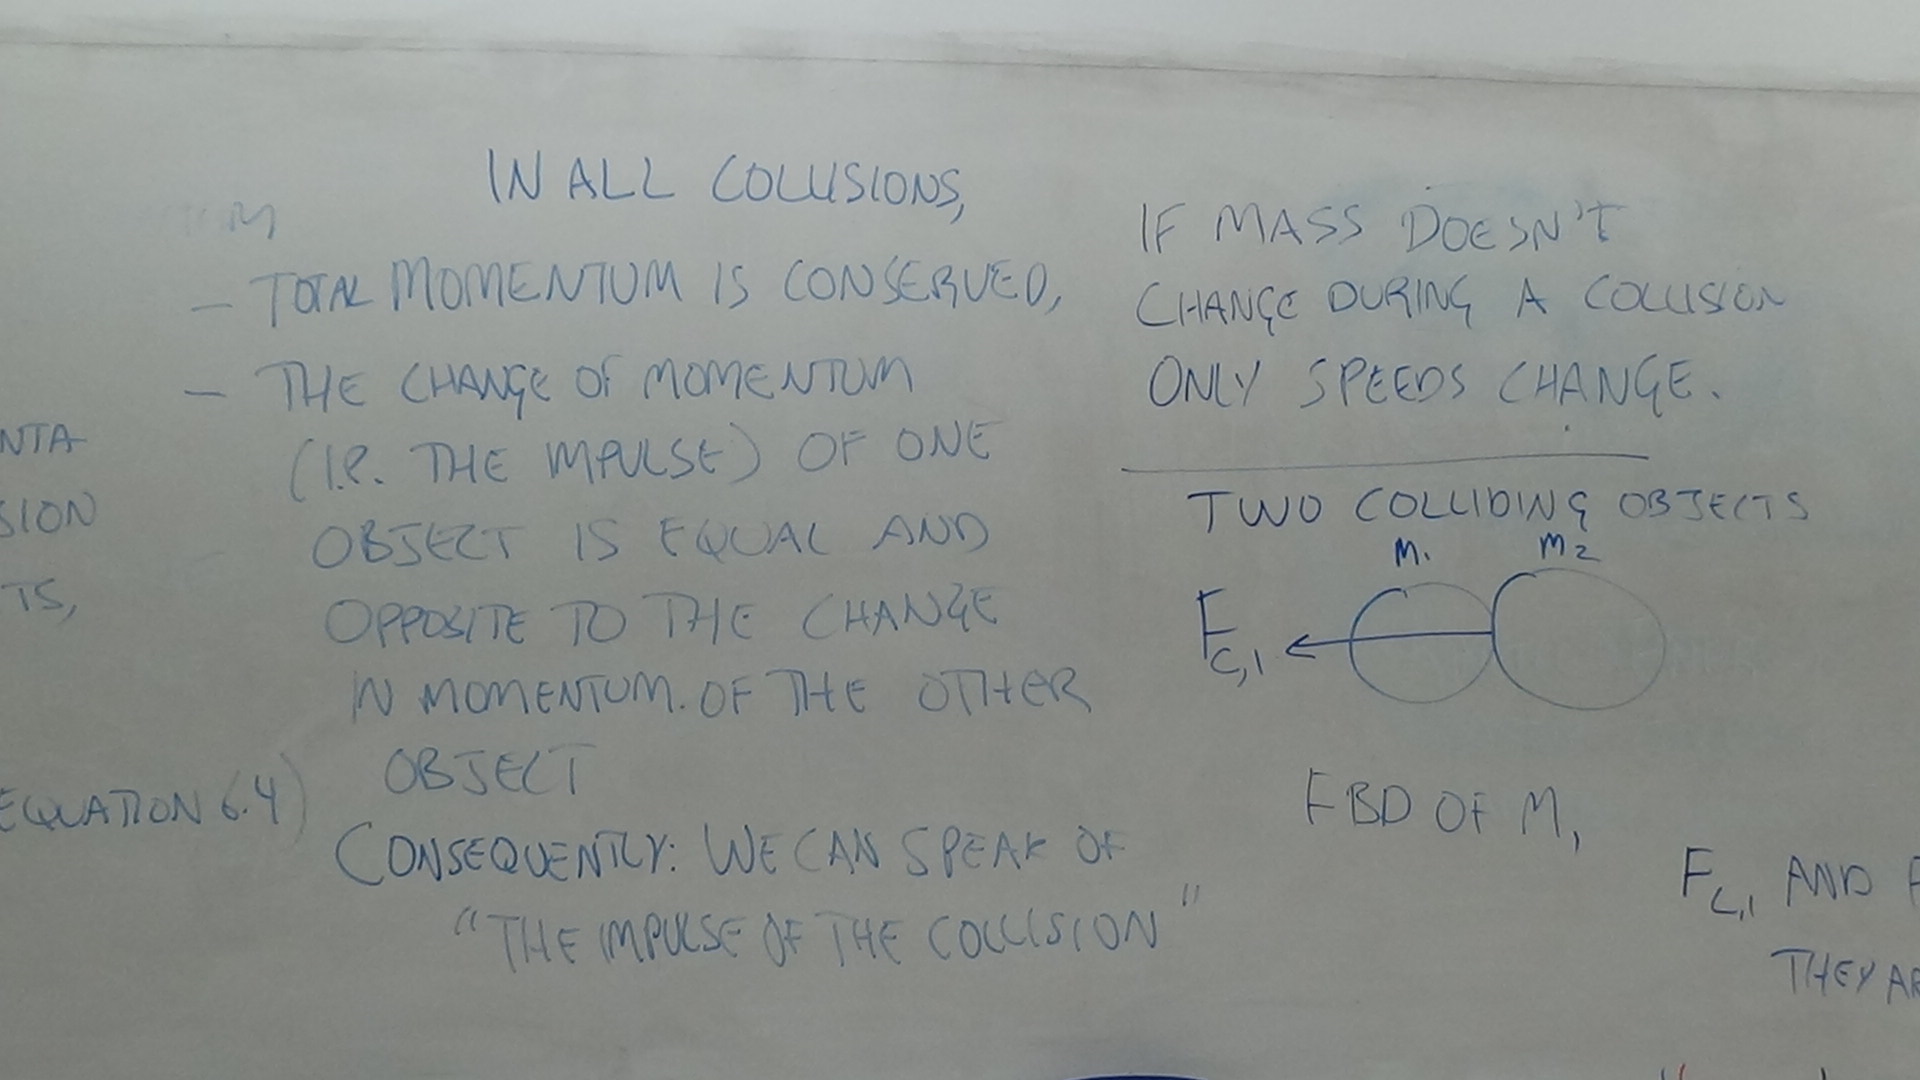 IN ALL COLLISIONS,
M
— TOTAL MOMENTUM IS CONSERVED,
— THE CHANGE OF MOMENTUM
(I.E. THE IMPULSE) OF ONE
OBJECT IS EQUAL AND
OPPOSITE TO THE CHANGE
IN MOMENTUM. OF THE OTHER
OBJECT
CONSEQUENTLY: WE CAN SPEAK OF
"THE IMPULSE OF THE COLLISION"
NTA
SION
TS,
EQUATION 6.4)
IF MASS DOESN'T
CHANGE DURING A COLLISION
ONLY SPEEDS CHANGE.
TWO COLLIDING OBJECTS
M1 M2
FC,1
FBD OF M1
FC,1 AND F
THEY AR